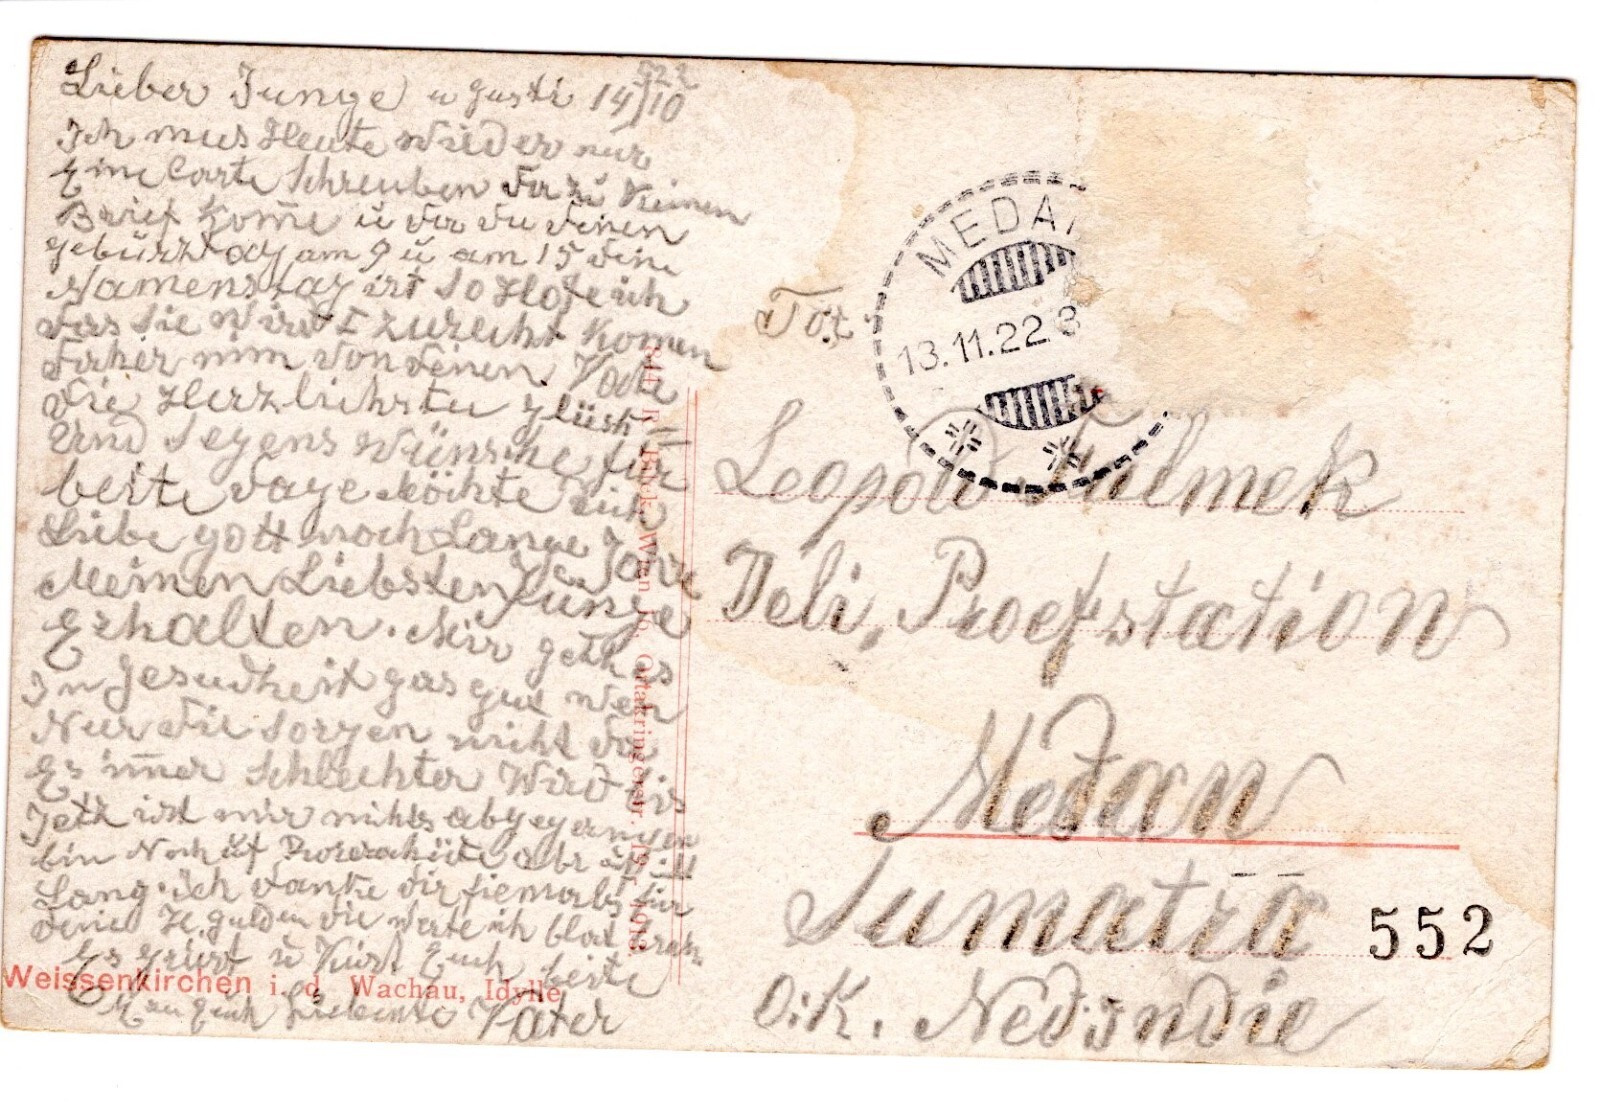 Lieber Junge u Gusti 14/10 922
Ich mus Heute Wieder nur
Eine Carte Schreuben Da zu Keinen
Brief Kom̄e ŭ da du deinen
gebürztag am 9 ŭ am 15 dein
Namenstag ist So Hofe ich
das Sie Wird zurecht Komen
Daher nim Von deinen Vate
die Herzlichsten glüsk
Und Segens Wünsche für
beite Dage Möchte dich
Liebe gott noch Lange Jare
Meinen Liebsten Jünge
Erhalten. Mir geth es
In gesudheit gas gut Wen
Nur die Sorgen nicht da
Es im̄er Schlechter Wird bis
Jetz ist mir nichts abgegangen
bin Noch auf
Lang. Ich Danke dir für
deine gulden die Werte ich
Es grüst ŭ Küst Euch beite
Euch Liebente Vater
Weissenkirchen i. d. Wachau, Idylle
Wien 16, Ottakringerstr. 1913
MEDAN
13.11.22.3
Leopold Fulmek
Deli, Proefstation
Medan
Sumatra
552
O.K. Nedindie